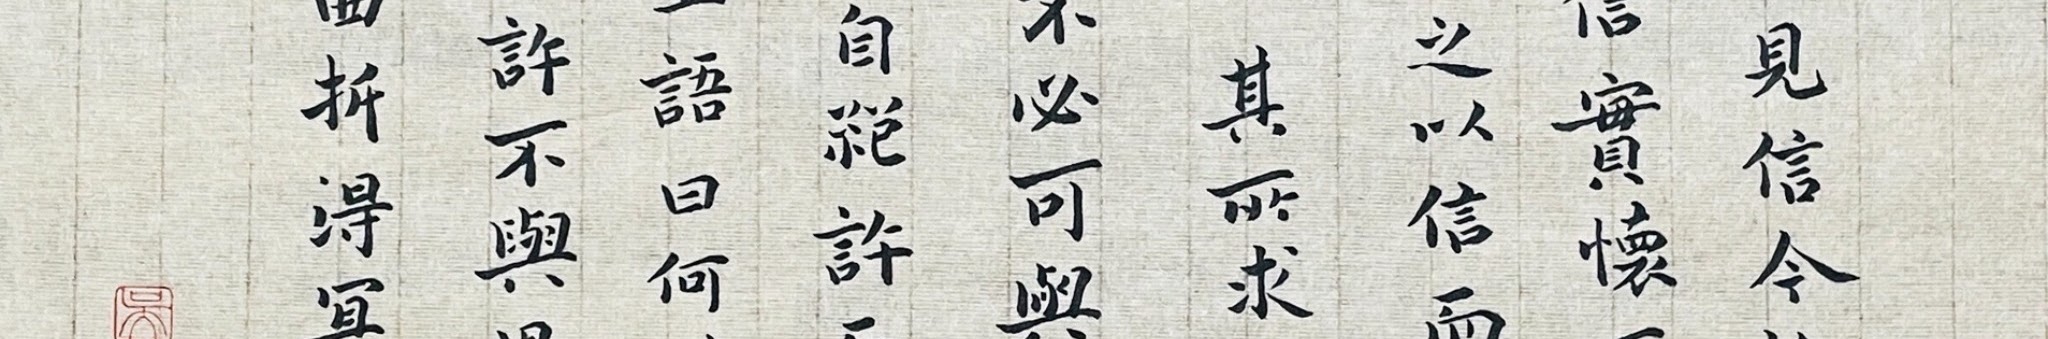 見信令
信實懷
之以信而
其所求
不必可與
自範許
語曰何
許不與
曲折得宜
吴